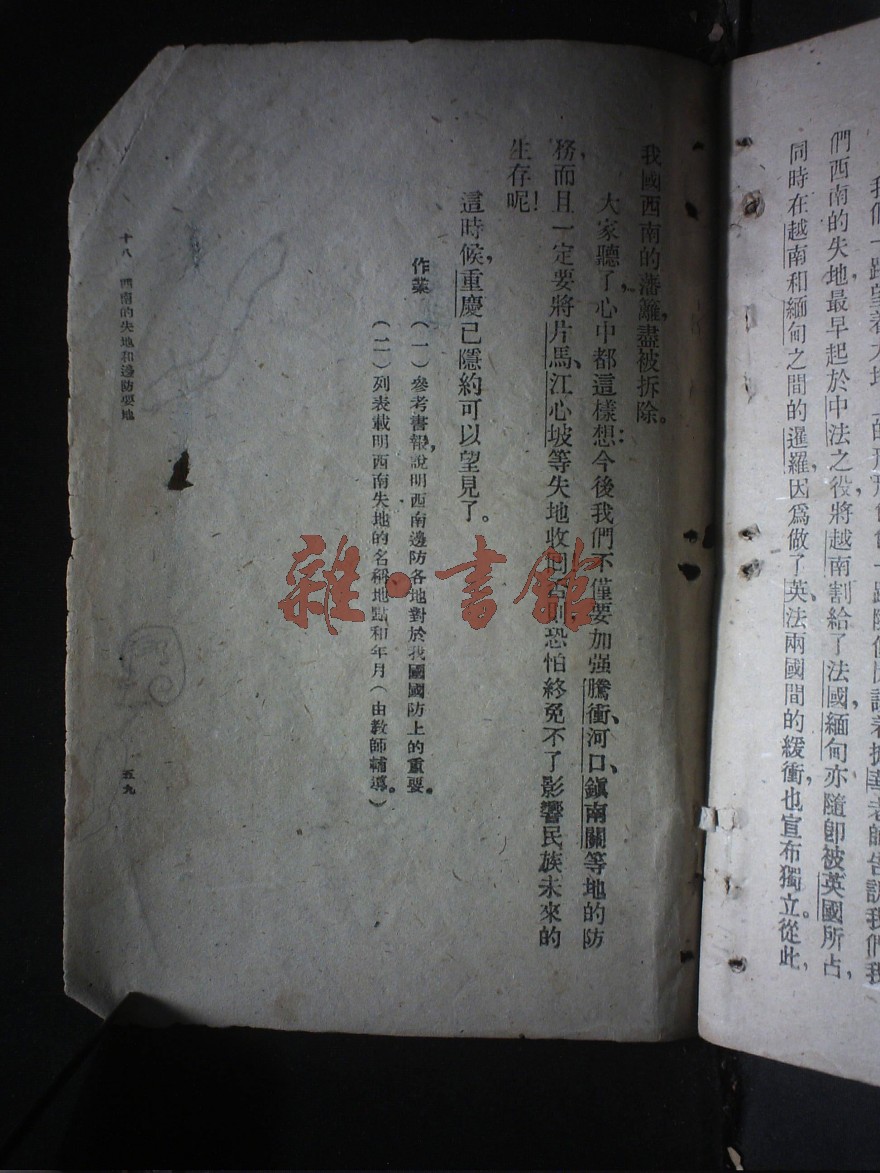 們西南的失地最早起於中法之役，將越南割給了法國，緬甸亦隨卽被英國所占，
同時在越南和緬甸之間的暹羅，因爲做了英、法兩國間的緩衝，也宣布獨立。從此，
我國西南的藩籬，盡被拆除。
大家聽了，心中都這樣想：今後我們不僅要加强騰衝、河口、鎭南關等地的防
務，而且一定要將片馬、江心坡等失地收回，否則恐怕終免不了影響民族未來的
生存呢！
這時候，重慶已隱約可以望見了。
作業 （一）參考書報，說明西南邊防各地對於我國國防上的重要。
（二）列表載明西南失地的名稱、地點和年月（由教師輔導。）
十八 西南的失地和邊防要地
五九
雜·書館